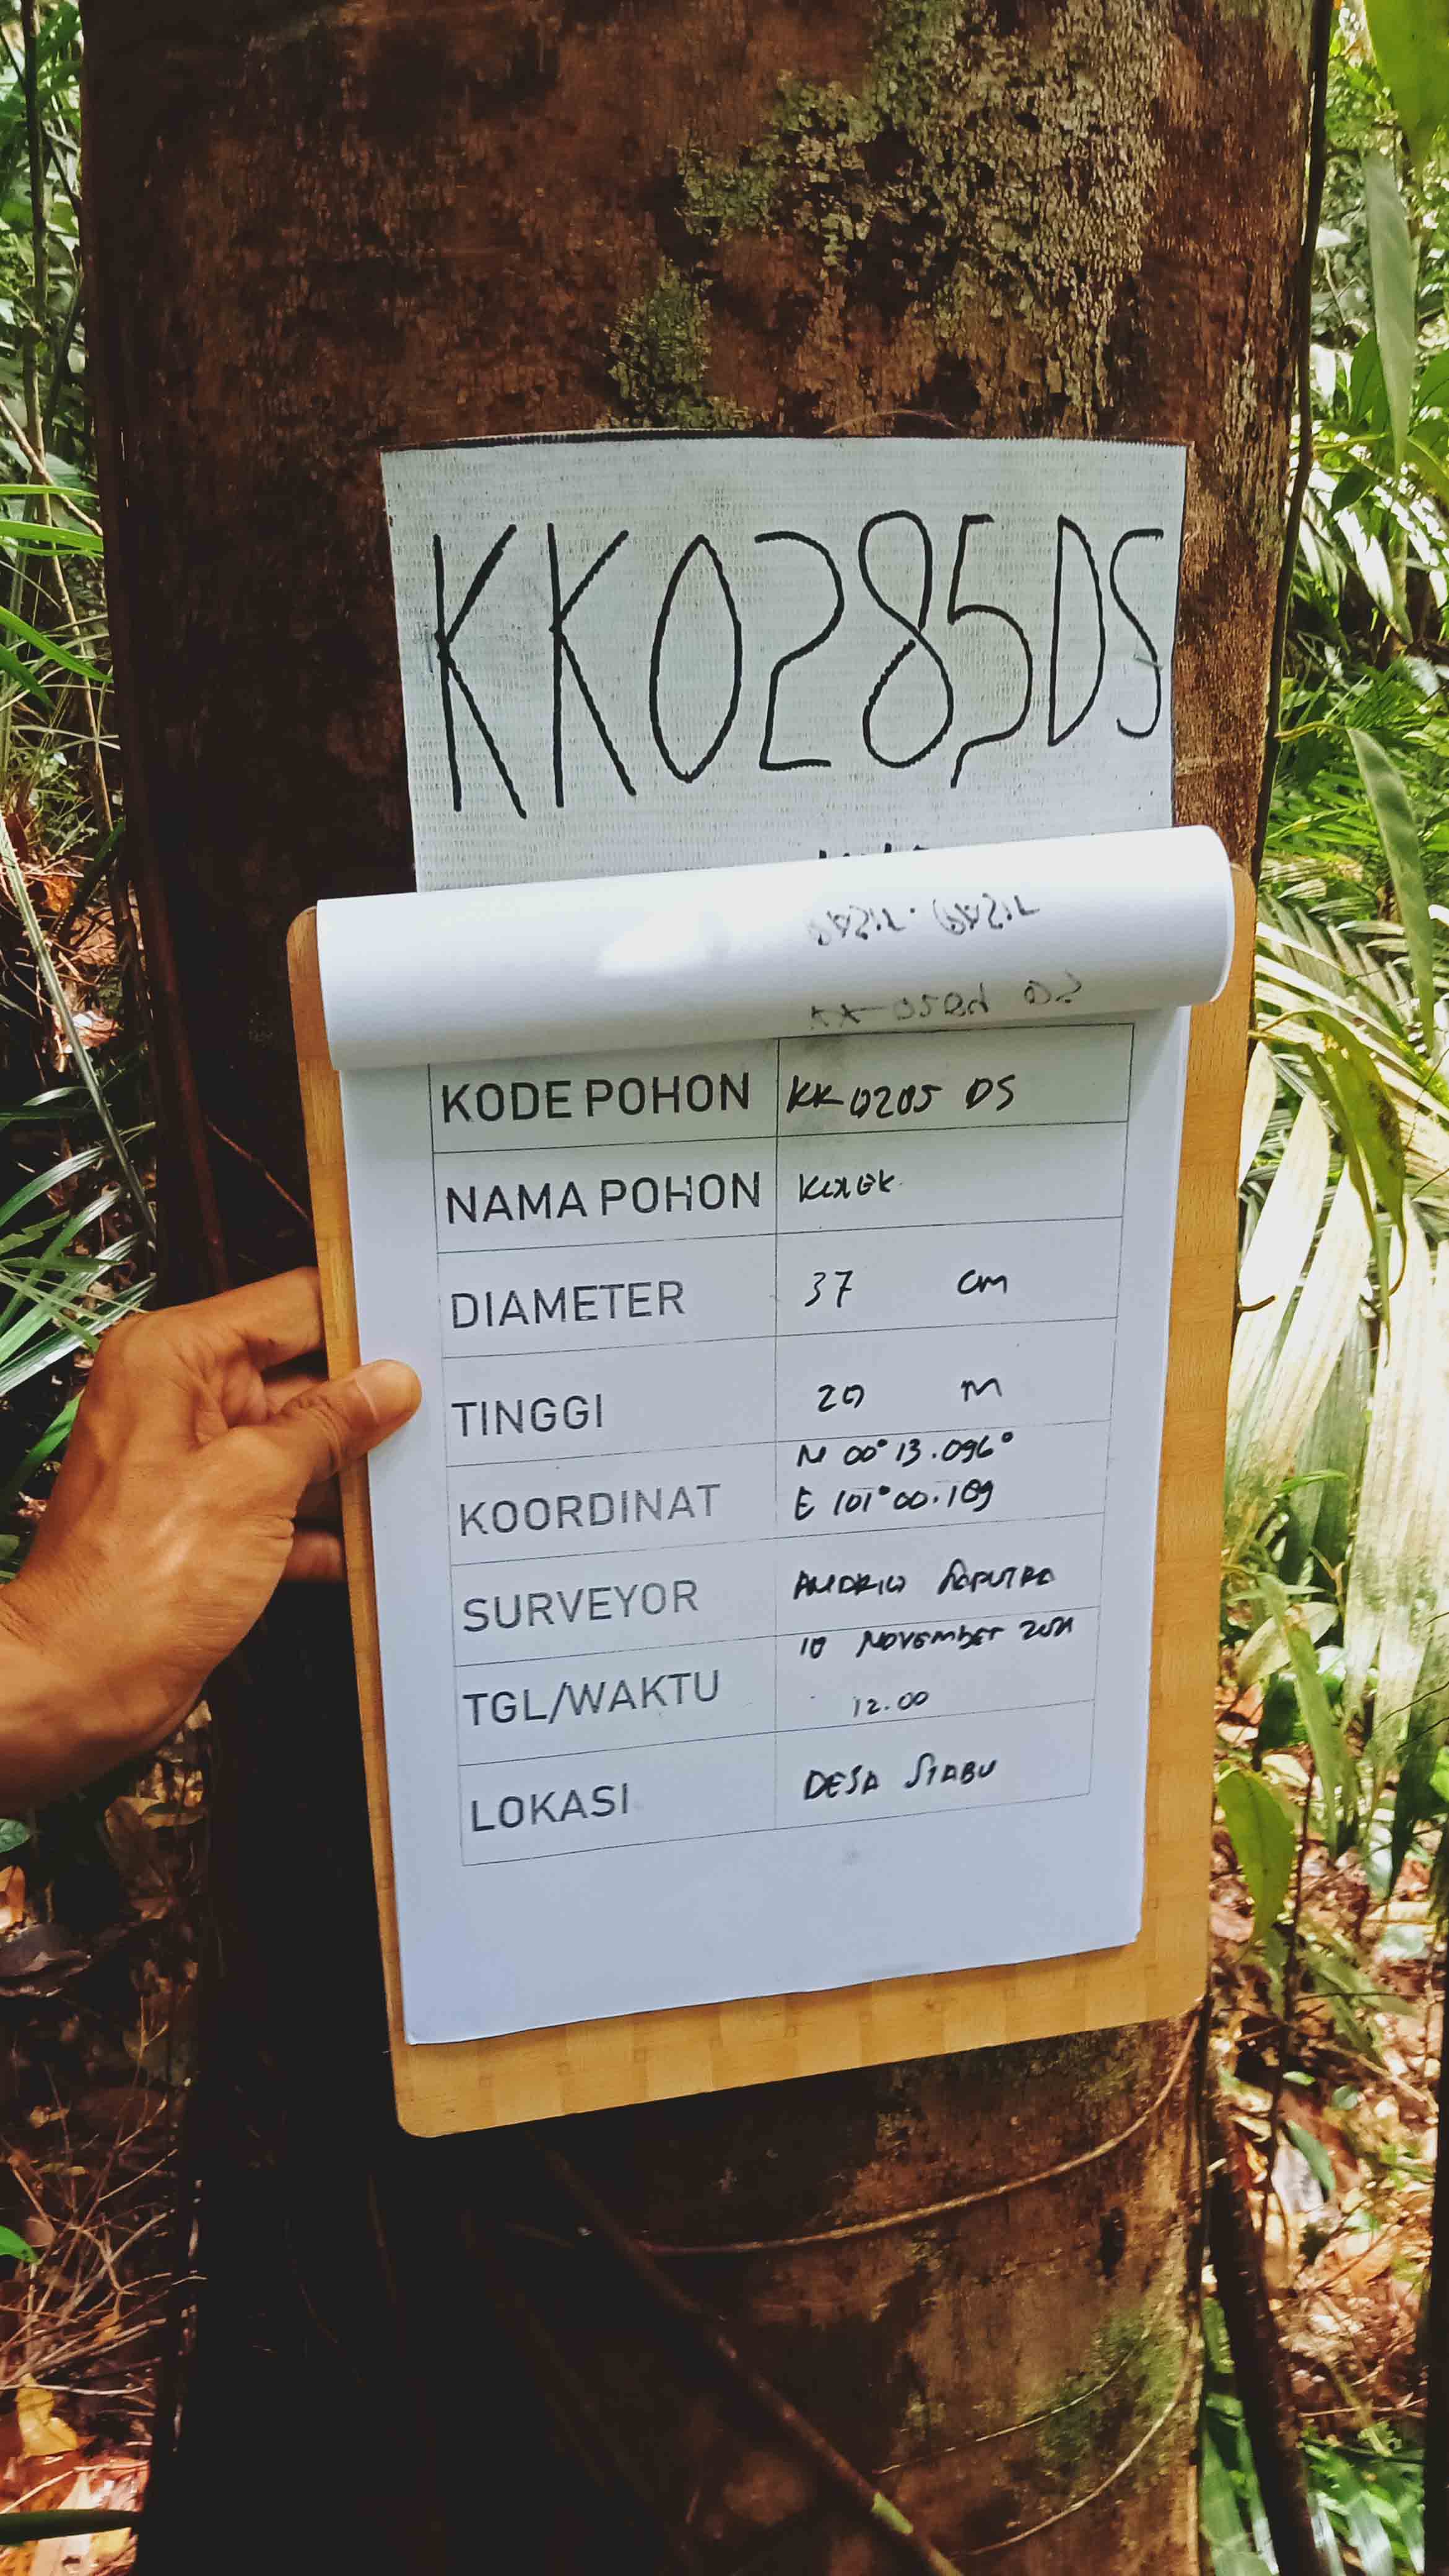 KK0285DS
KODE POHON KK 0285 DS
NAMA POHON
DIAMETER 37 cm
TINGGI 20 m
KOORDINAT N 00° 13.096°
E 101° 00.189
SURVEYOR ANDRIO SAPUTRA
TGL/WAKTU 10 NOVEMBER 2021
12.00
LOKASI DESA SIABU